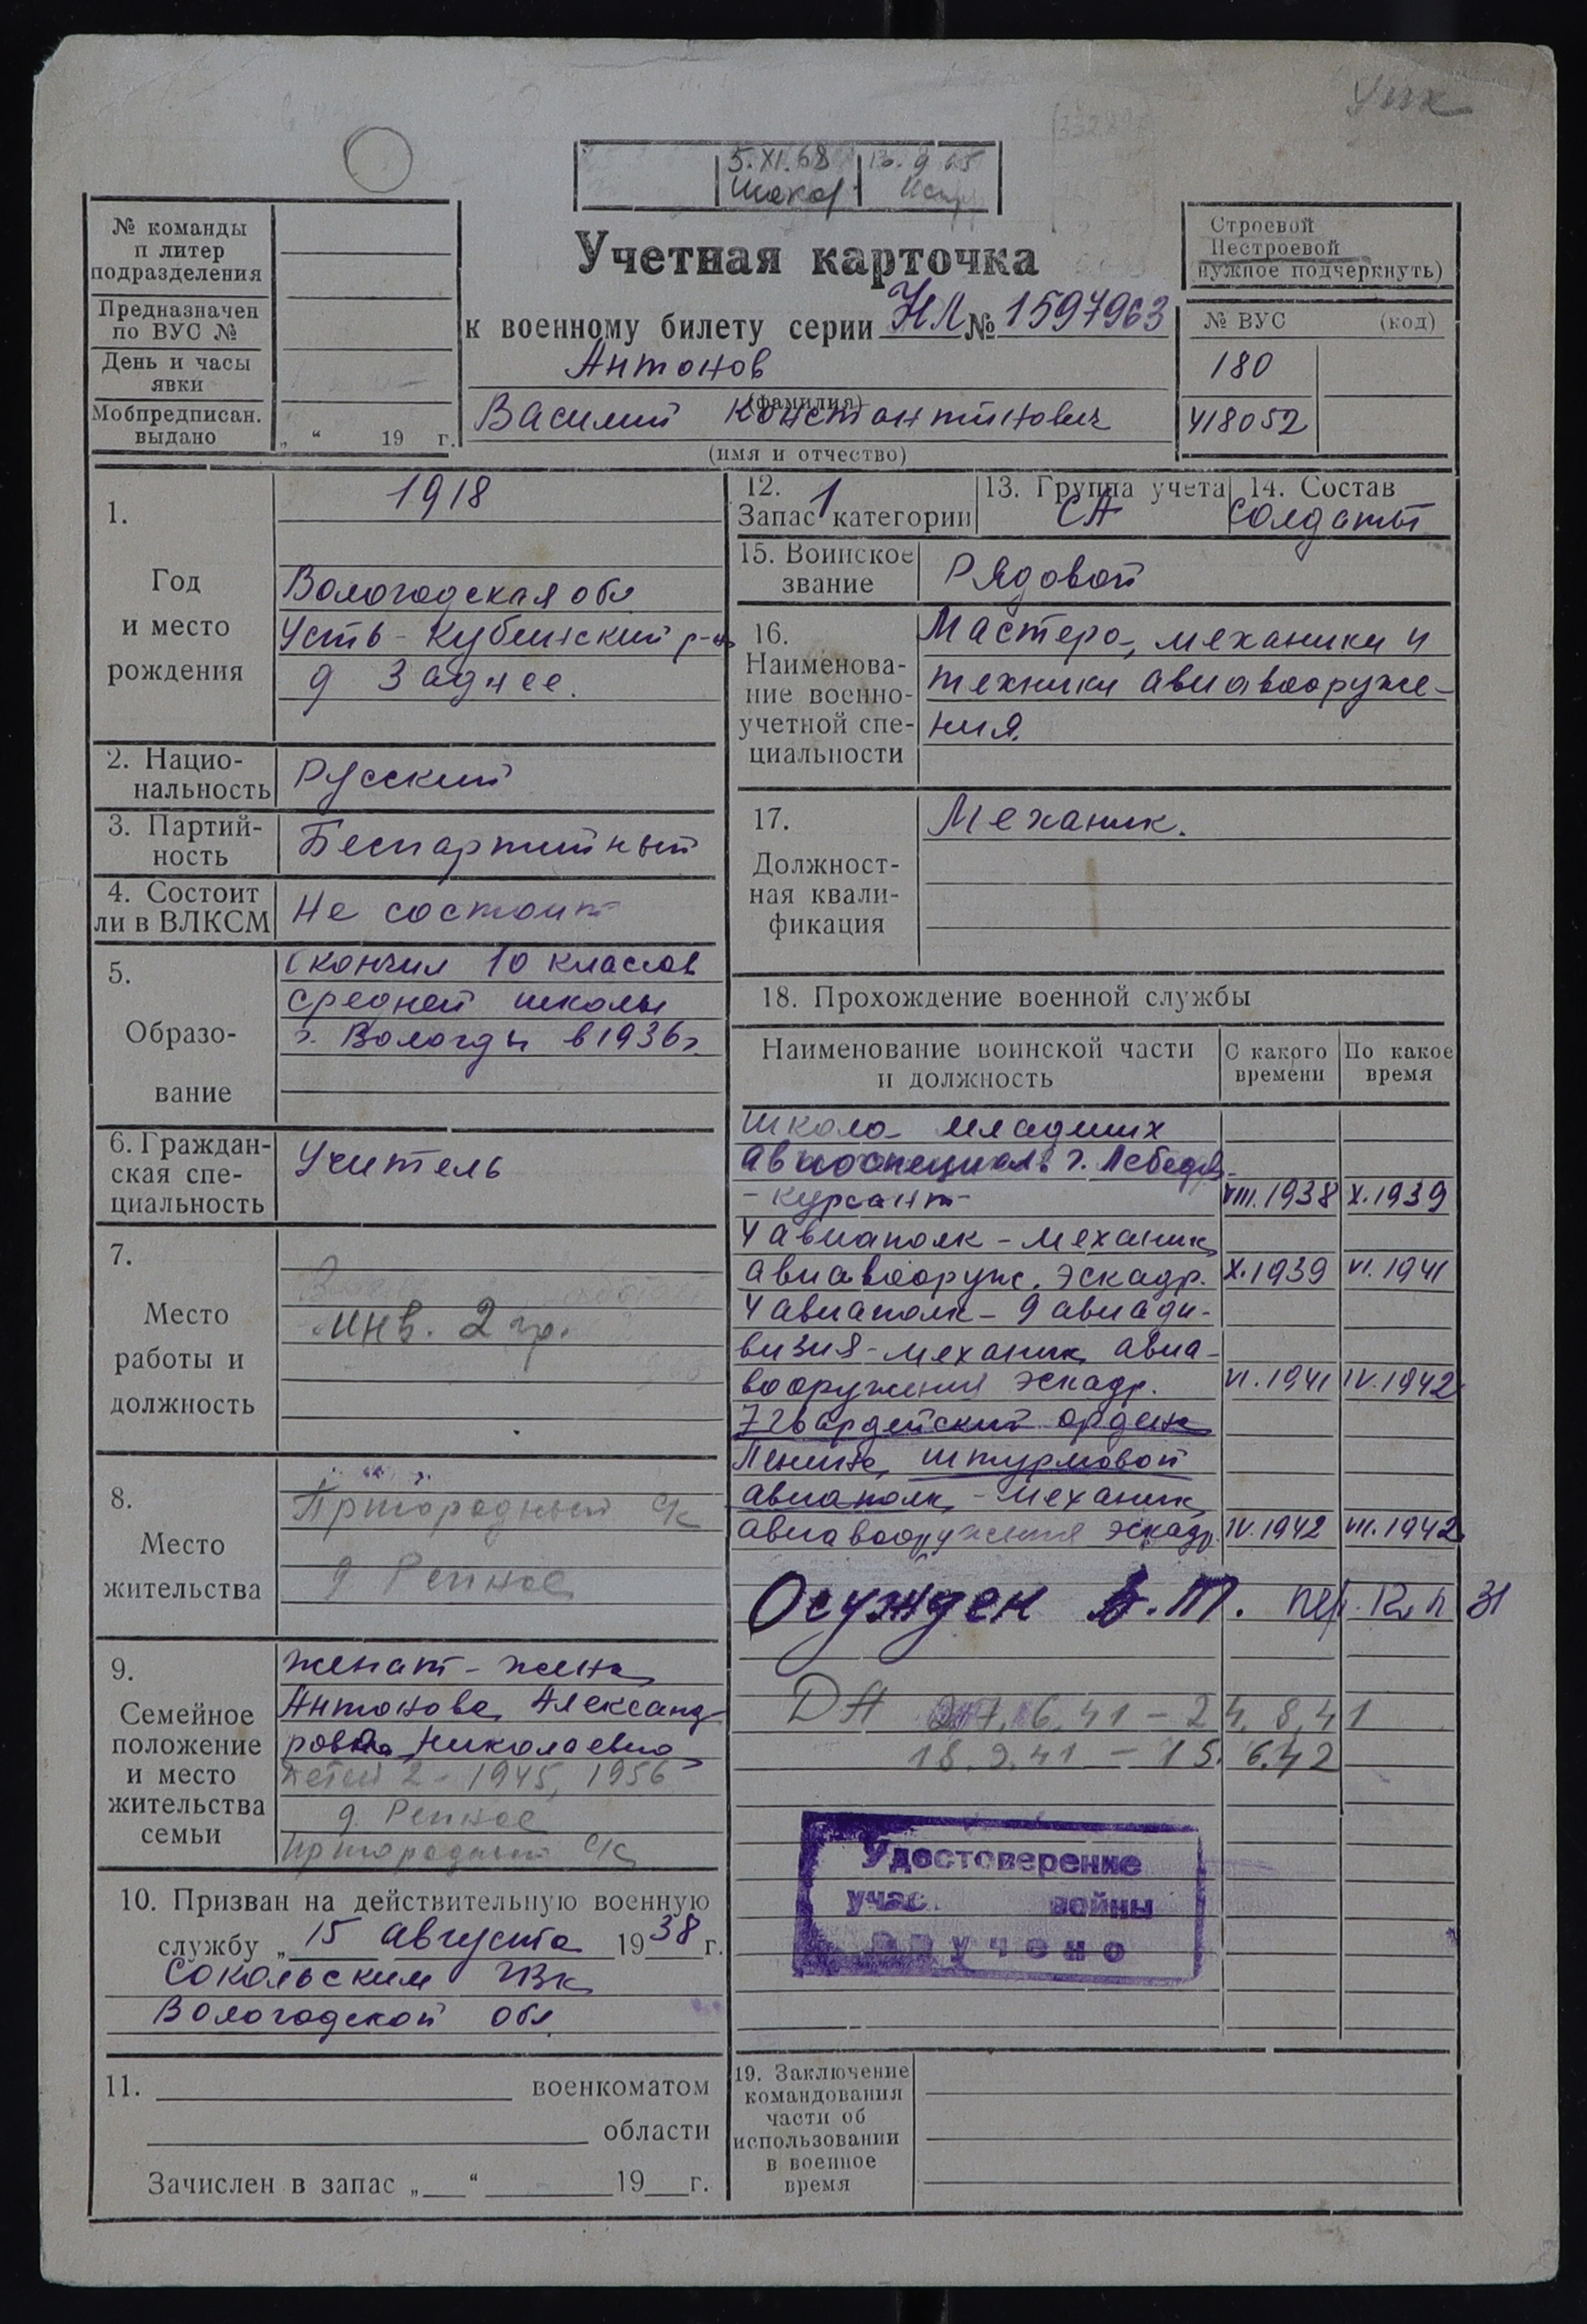 5.XI.68
№ команды
и литер
подразделения
Предназначен
по ВУС №
День и часы
явки
Мобпредписан.
выдано
„ “ 19 г.
Учетная карточка
к военному билету серии НЛ № 1597963
Антонов
(фамилия)
Василий Константинович
(имя и отчество)
Строевой
Нестроевой
нужное подчеркнуть)
№ ВУС (код)
180
418052
1.
Год
и место
рождения
1918
Вологодская обл
Усть-Кубинский р-н
д Заднее.
2. Нацио-
нальность
Русский
3. Партий-
ность
Беспартийный
4. Состоит
ли в ВЛКСМ
Не состоит
5.
Образо-
вание
Окончил 10 классов
средней школы
г. Вологды в 1936г.
6. Граждан-
ская спе-
циальность
Учитель
7.
Место
работы и
должность
инв. 2 гр.
8.
Место
жительства
Пригородный с/с
д Репное
9.
Семейное
положение
и место
жительства
семьи
женат - жена
Антонова Александ
ровна Николаевна
Детей 2 - 1945, 1956
д. Репное
Пригородный с/с
10. Призван на действительную военную
службу „ 15 августа 1938 г.
Сокольским РВК
Вологодской обл.
11. военкоматом
области
Зачислен в запас „ “ 19 г.
12. 1
Запас категории
13. Группа учета
СА
14. Состав
Солдаты
15. Воинское
звание
Рядовой
16.
Наименова-
ние военно-
учетной спе-
циальности
Мастера, механики и
техники авиавооруже-
ния.
17.
Должност-
ная квали-
фикация
Механик.
18. Прохождение военной службы
Наименование воинской части
и должность
С какого
времени
По какое
время
Школа младших
авиоспециал. г. Лебедянь
- курсант - VIII.1938 X.1939
4 авиаполк - механик
авиавооруж. эскадр. X.1939 VI.1941
4 авиаполк - 9 авиади-
визия - механик авиа-
вооружения эскадр. VI.1941 IV.1942
7 гвардейский ордена
Ленина, штурмовой
авиаполк - механик
авиавооружения эскадр. IV.1942 VII.1942
Осужден В.Т. 31
ДА 27.6.41 - 24.8.41
18.9.41 - 15.6.42
Удостоверение
учас. войны
Вручено
19. Заключение
командования
части об
использовании
в военное
время